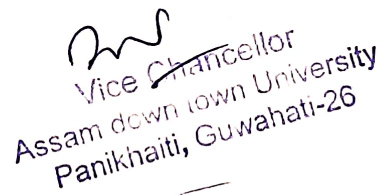 Vice Chancellor
Assam down town University
Panikhaiti, Guwahati-26